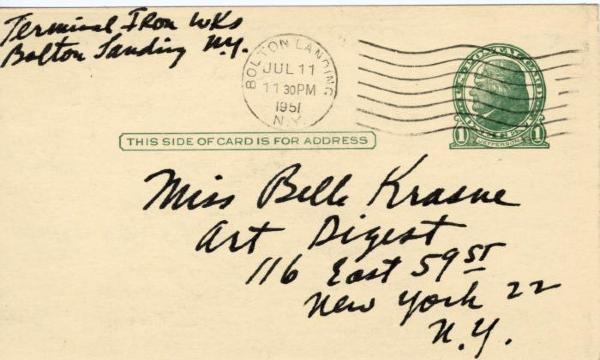 Terminal Iron Wks
Bolton Landing N.Y.
BOLTON LANDING
JUL 11
11 30PM
1951
N.Y.
U.S. POSTAL CARD
1 1
JEFFERSON
THIS SIDE OF CARD IS FOR ADDRESS
Miss Belle Krasne
Art Digest
116 East 59 ST
New York 22
N.Y.